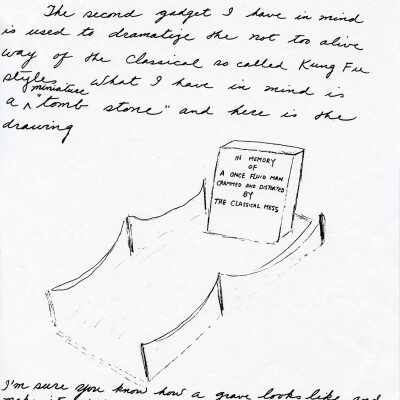 The second gadget I have in mind
is used to dramatize the not too alive
way of the Classical so called Kung Fu
styles. What I have in mind is
a miniature "tomb stone" and here is the
drawing
IN MEMORY
OF
A ONCE FLUID MAN
CRAMMED AND DISTORTED
BY
THE CLASSICAL MESS
I'm sure you know how a grave looks like and
make it